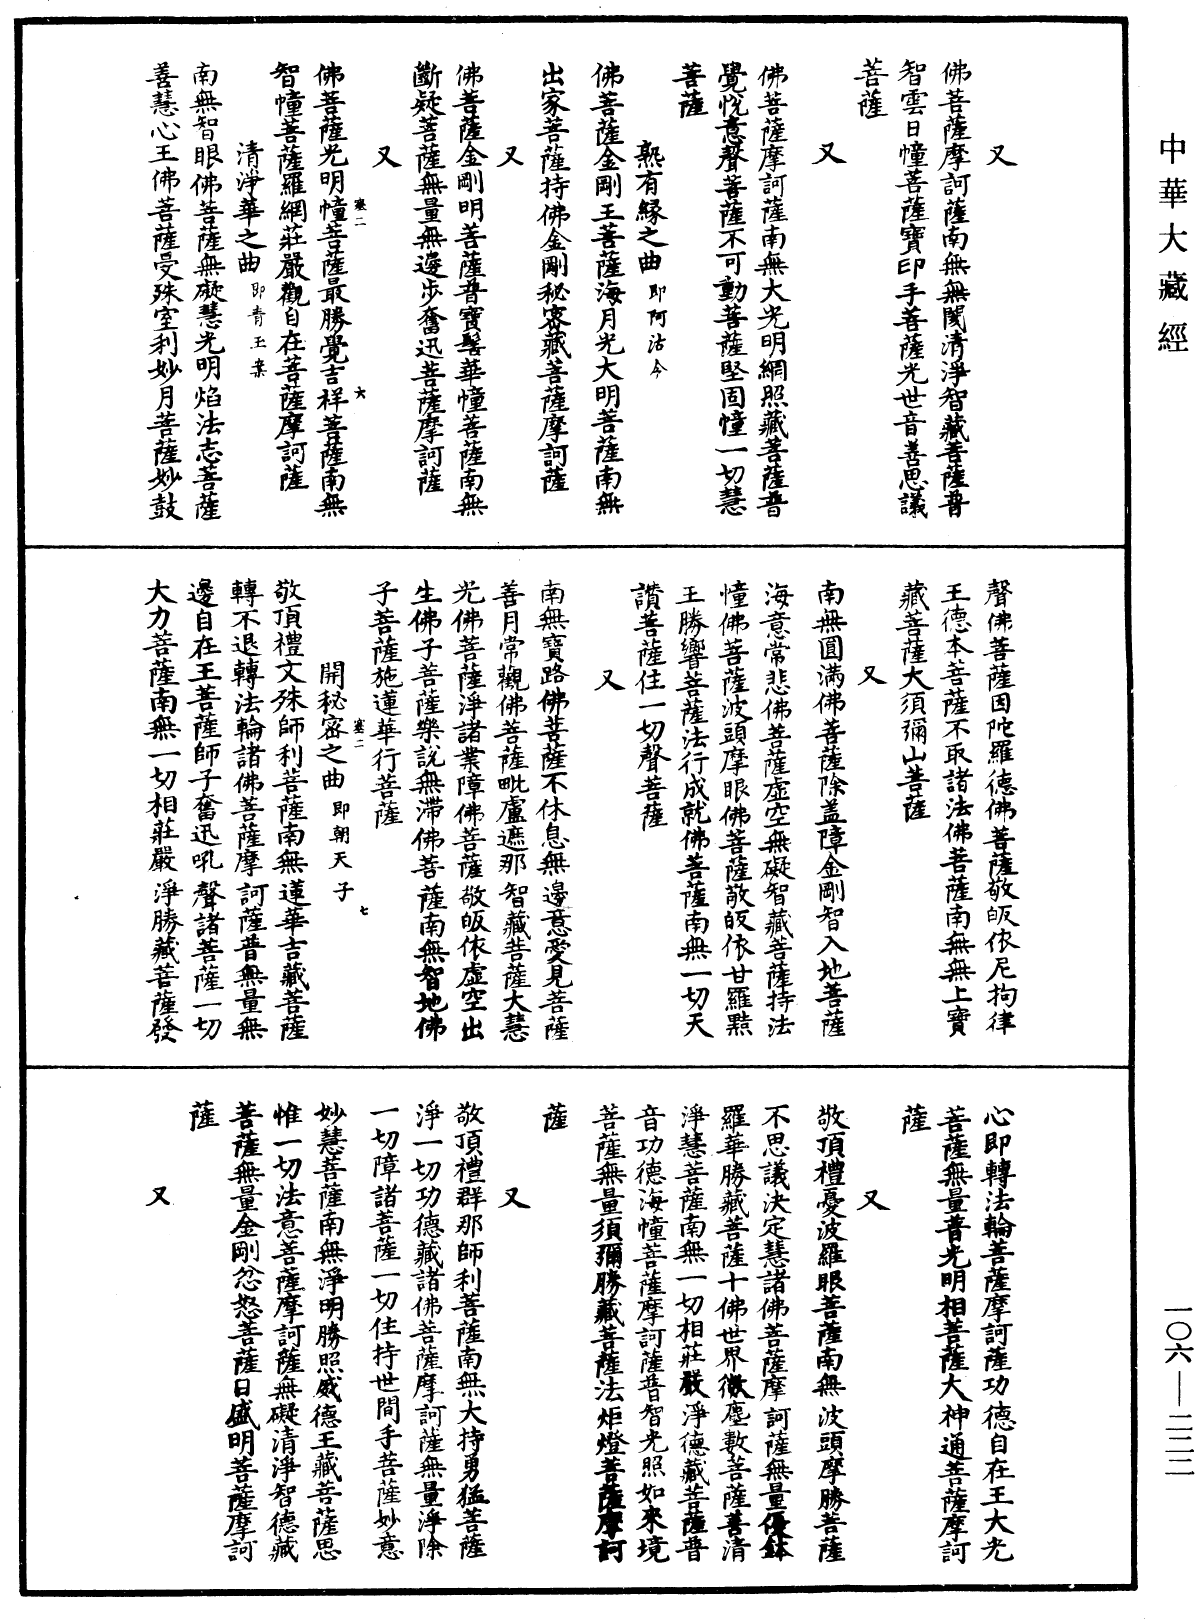 中華大藏經
又
佛菩薩摩訶薩南無無閡清淨智藏菩薩普
智雲日幢菩薩寶印手菩薩光世音善思議
菩薩
又
佛菩薩摩訶薩南無大光明網照藏菩薩普
覺悅意聲菩薩不可動菩薩堅固幢一切慧
菩薩
熟有緣之曲即阿沽今
佛菩薩金剛王菩薩海月光大明菩薩南無
出家菩薩持佛金剛秘密藏菩薩摩訶薩
又
佛菩薩金剛明菩薩普寶髻華幢菩薩南無
斷疑菩薩無量無邊步奮迅菩薩摩訶薩
又
塞二 六
佛菩薩光明幢菩薩最勝覺吉祥菩薩南無
智幢菩薩羅網莊嚴觀自在菩薩摩訶薩
清淨華之曲即青玉案
南無智眼佛菩薩無礙慧光明焰法志菩薩
善慧心王佛菩薩曼殊室利妙月菩薩妙鼓
聲佛菩薩因陀羅德佛菩薩敬皈依尼拘律
王德本菩薩不取諸法佛菩薩南無無上寶
藏菩薩大須彌山菩薩
又
南無圓滿佛菩薩除盖障金剛智入地菩薩
海意常悲佛菩薩虛空無礙智藏菩薩持法
幢佛菩薩波頭摩眼佛菩薩敬皈依甘羅㸃
王勝響菩薩法行成就佛菩薩南無一切天
讚菩薩住一切聲菩薩
又
南無寶路佛菩薩不休息無邊意愛見菩薩
善月常觀佛菩薩毗盧遮那智藏菩薩大慧
光佛菩薩淨諸業障佛菩薩敬皈依虛空出
生佛子菩薩樂說無滯佛菩薩南無智地佛
子菩薩施蓮華行菩薩
塞二 七
開秘密之曲即朝天子
敬頂禮文殊師利菩薩南無蓮華吉藏菩薩
轉不退轉法輪諸佛菩薩摩訶薩普無量無
邊自在王菩薩師子奮迅吼聲諸菩薩一切
大力菩薩南無一切相莊嚴淨勝藏菩薩發
心即轉法輪菩薩摩訶薩功德自在王大光
菩薩無量普光明相菩薩大神通菩薩摩訶
薩
又
敬頂禮憂波羅眼菩薩南無波頭摩勝菩薩
不思議決定慧諸佛菩薩摩訶薩無量優鉢
羅華勝藏菩薩十佛世界微塵數菩薩善清
淨慧菩薩南無一切相莊嚴淨德藏菩薩普
音功德海幢菩薩摩訶薩普智光照如來境
菩薩無量須彌勝藏菩薩法炬燈菩薩摩訶
薩
又
敬頂禮群那師利菩薩南無大持勇猛菩薩
淨一切功德藏諸佛菩薩摩訶薩無量淨除
一切障諸菩薩一切住持世間手菩薩妙意
妙慧菩薩南無淨明勝照威德王藏菩薩思
惟一切法意菩薩摩訶薩無礙清淨智德藏
菩薩無量金剛忿怒菩薩日盛明菩薩摩訶
薩
又
一〇六—二二二